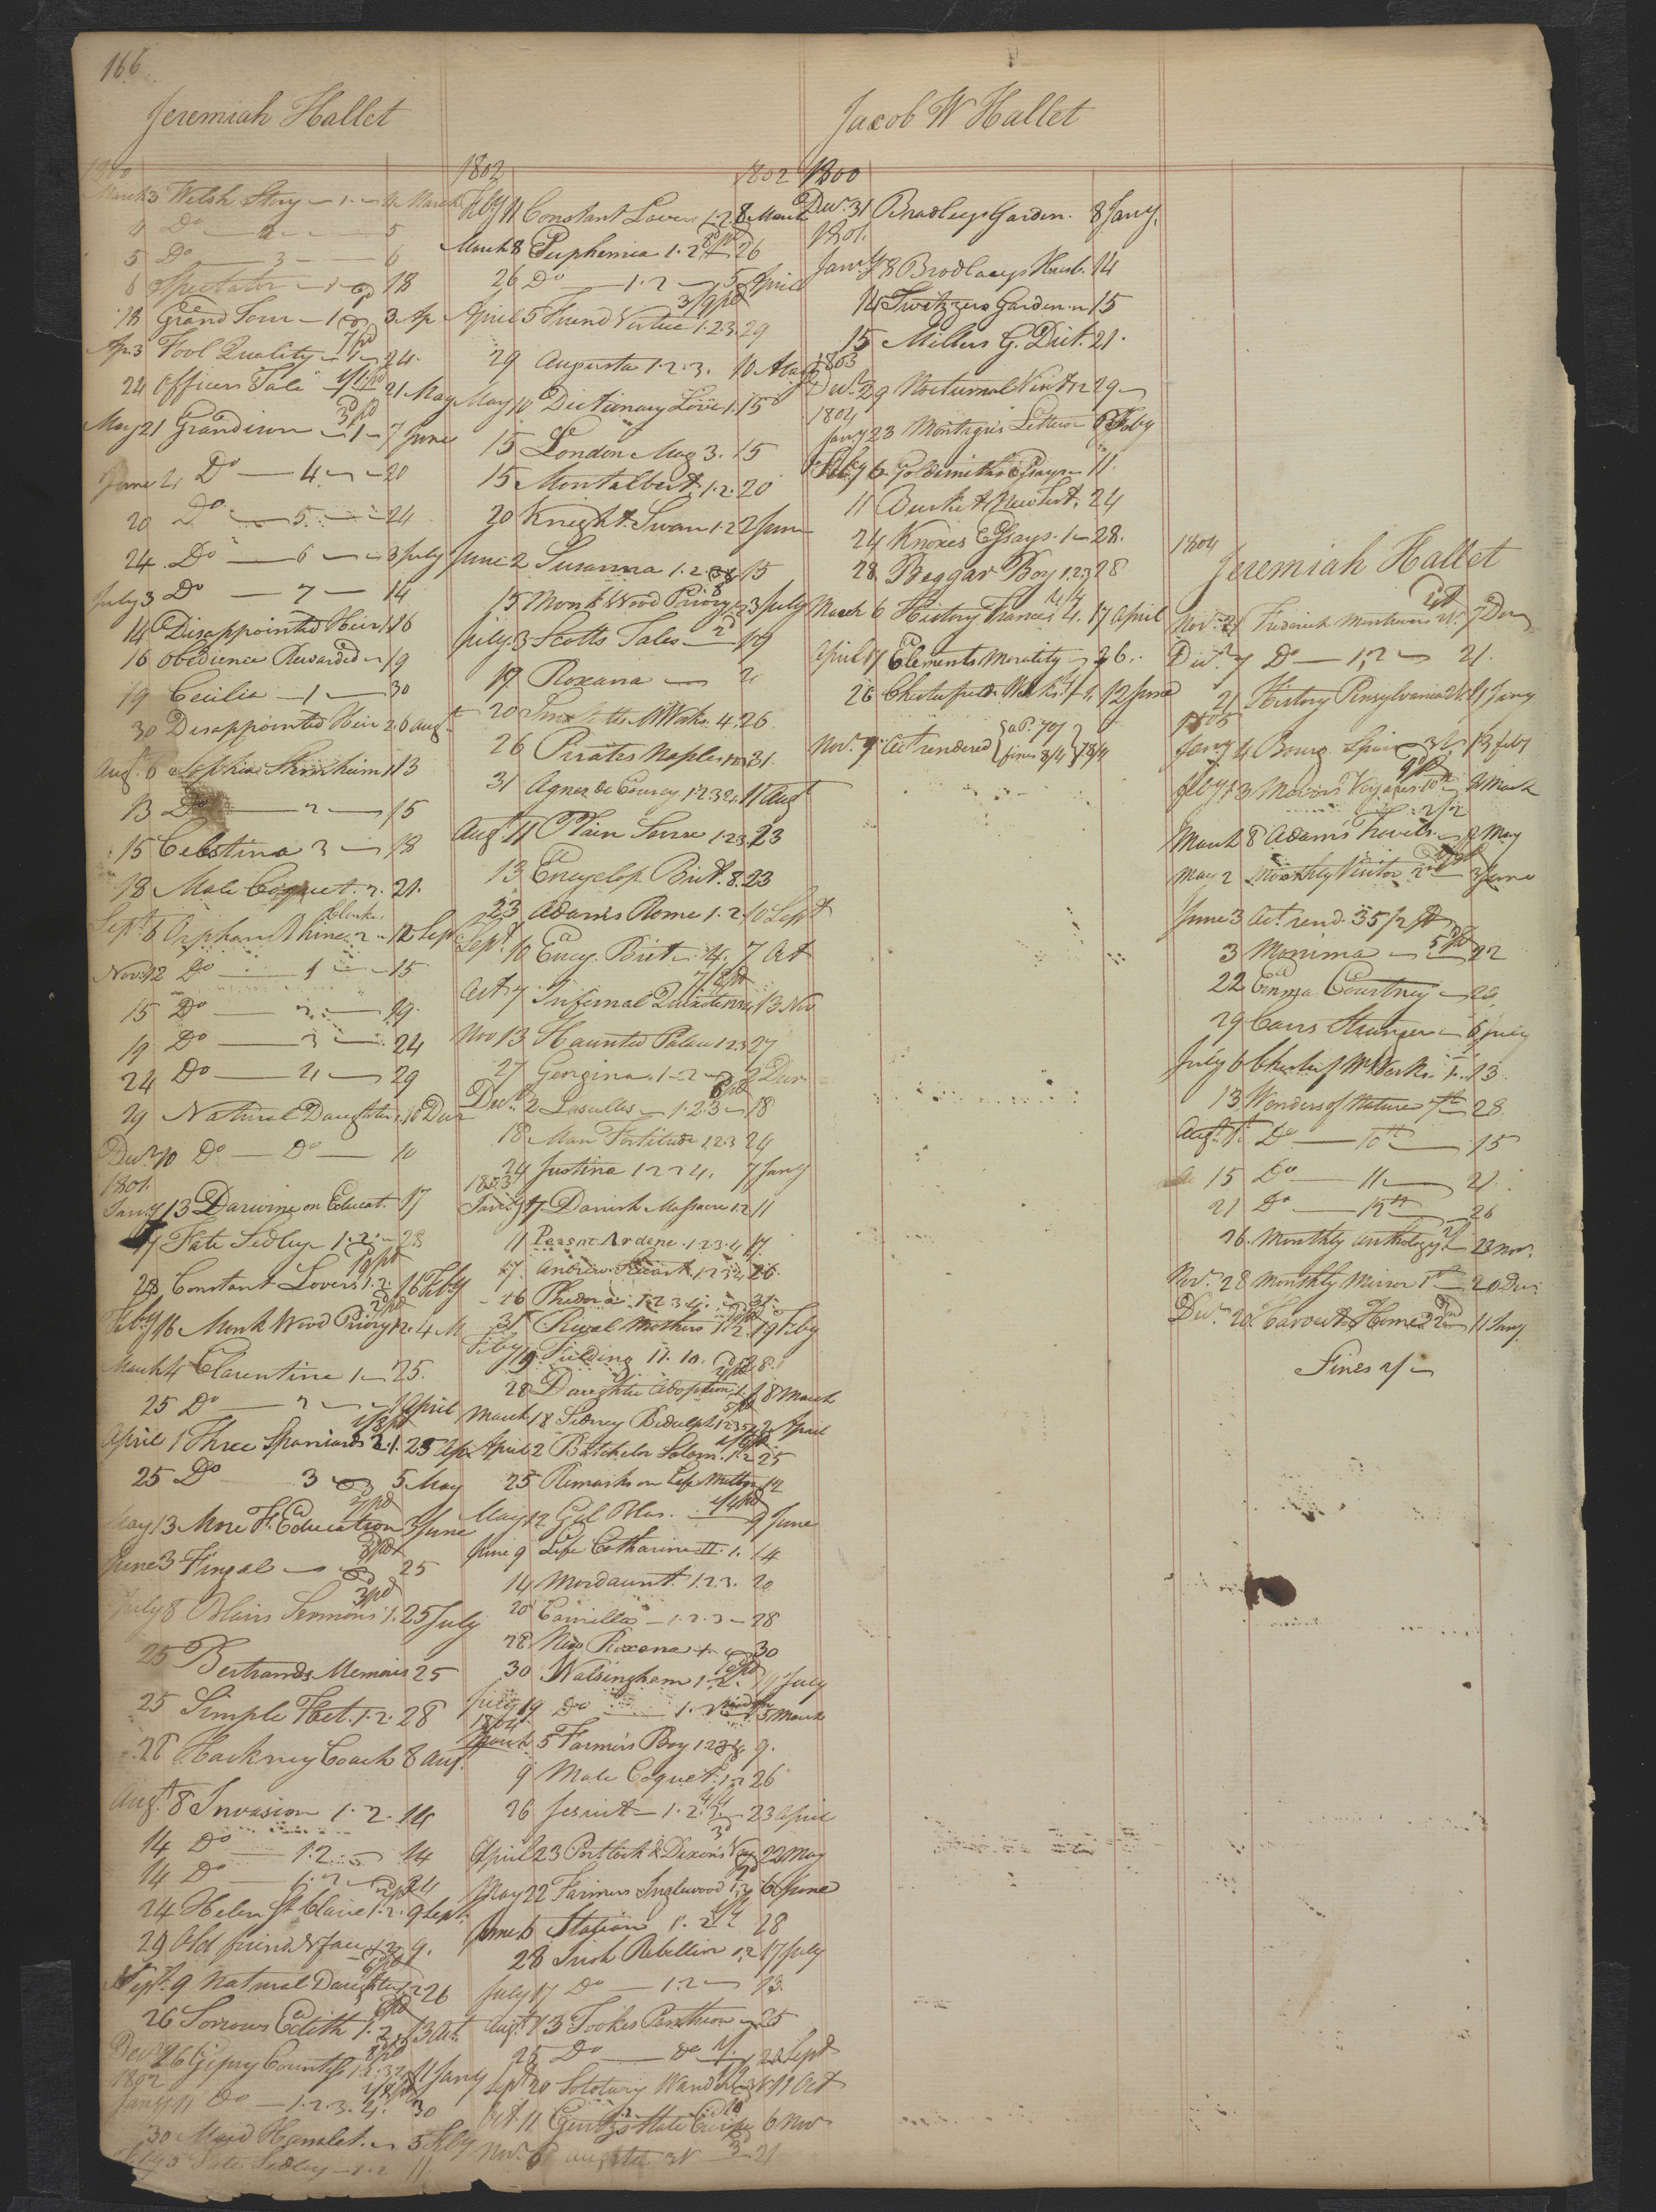 166
Jeremiah Hallet
1800
March 3 Welsh Story 1 4 March
4 Do 2 5
5 Do 3 6
6 Spectator 1 18
18 Grand Tour 1 3 Ap
Ap 3 Fool Quality 1 24
24 Officers Tale 21 May
May 21 Grandison 1 7 June
June Do 4 20
20 Do 5 24
24 Do 6 3 July
July 3 Do 7 14
14 Disappointed Heir 1 16
16 Obedience Rewarded 19
19 Cecilia 1 30
30 Disappointed Heir 2 6 Augt
Augt 6 Sophia 1 13
13 Do 2 15
15 Celestina 3 18
18 Male Coquet 2 21
Sept 6 Orphan Rhine 2 12 Sep
Nov 12 Do 1 15
15 Do 2 19
19 Do 3 24
24 Do 4 29
29 Natural Daughter 10 Decr
Decr 10 Do Do 10
1801
Jany 13 Darwine on Educat. 17
17 Fate Sedley 1.2 28
28 Constant Lovers 1.2 16 Feby
Feby 16 Monk Wood Priory 1.2 4 M
March 4 Clarentine 1 25
25 Do 2 1 April
April 1 Three Spaniards 2.1. 25 Ap
25 Do 3 5 May
May 13 More F. Education 3 June
June 3 Fingal 25
July 8 Blairs Sermons 1. 25 July
25 Bertrands Memoirs 25
25 Simple Fact. 1.2. 28
28 Hackney Coach 8 Aug.
Augt 8 Invasion 1.2. 14
14 Do 1.2 14
14 Do 1.2 24
24 Helen St Claire 1.2. 9 Sept
29 Old friend & face 1.2 9.
Sept. 9 Natural Daughter 1.2 26
26 Sorrows Edith 1.2 13 Oct
Decr 26 Gipsy Countess 1.2.3.4 11 Jany
1802
Jany 11 Do 1.2.3.4. 30
30 Maid Hamlet. 3 Feby
Feby 3 Fate Sedley 1.2 11
1802 1802
Feby 11 Constant Lover 1.2. 8 March
March 8 Euphemia 1.2 26
26 Do 1.2 5 April
April 5 Friend Virtue 1.2.3 29
29 Augusta 1.2.3. 10 May
May 10 Dictionary Love 1. 15
15 London Mag 3. 15
15 Montalbert 1.2. 20
20 Knight Swan 1.2 2 June
June 2 Susanna 1.2. 15
15 Monk Wood Priory 3 July
July 3 Scotts Tales 19
19 Roxana 2
20 Works 4. 26
26 Pirates Naples 31.
31 Agnes de Courcy 1.2.3.4. 11 Augt
Augt 11 Plain Sense 1.2.3. 23
13 Encyclop. Brit. 8. 23
23 Adams Rome 1.2. 10 Sept
Sept. 10 Ency. Brit. 4. 7 Oct
Oct 7 Infernal Quixote 13 Nov
Nov 13 Haunted Palace 1.2.3 27
27 Georgina 1.2 2 Decr
Decr. 2 Lascelles 1.2.3 18
18 Man Fortitude 1.2.3 24
24 Justina 1.2 7 Jany
1803
Jany 7 Danish Massacre 1.2 11
11 Peasnt Ardene 1.2.3.4 17.
17 Andrew Stuart 1.2.3.4 26.
26 Phedora 1.2.3.4. 31.
31 Rival Mothers 1.2. 19 Feby
Feby 19 Fielding 11. 10. 28.
28 Daughter Adoption 1.2 18 March
March 18 Sidney Bidulph 1.2.3 2 April
April 2 Batchelor Salem 1.2 25
25 Remarks on Life Milton 12
May 12 Gil Blas 9 June
June 9 Life Catharine II. 1. 14
14 Mordaunt 1.2.3. 20
20 Camilla 1.2.3 28
28 New Roxana 30
30 Walsingham 1.2. 19 July
July 19 Do 1.2 5 March
1804
March 5 Farmers Boy 1.2.3.4 9.
9 Male Coquet 1.2 26
26 Jesuit 1.2. 23 April
April 23 Portlock & Dixons Voy 22 May
May 22 Farmers Inglewood 1.2 6 June
June 6 Italian 1.2 28
28 Irish Rebellion 1.2 17 July
July 17 Do 1.2 13.
Augt 13 Tookes Pantheon 25
25 Do do 20 Sept
Sept 20 Solotary Wand 11 Oct
Oct 11 Gentz's State Europe 6 Nov
Nov. 6 21
Jacob W Hallet
1800
Decr. 31 Bradleys Garden. 8 Jany.
1801.
Jany 8 Bradleys Husb. 14
14 Switzers Garden 15
15 Millers G. Dict. 21.
1803
Decr. 29 Nocturnal Visit 29
1804
Jany 23 Montagu's Letters 6 Feby
Feby 6 Goldsmiths Essays 11.
11 Burkitt New Test. 24
24 Knoxes Essays. 1 28.
28 Beggar Boy 1.2.3 28
March 6 History France 4. 17 April
April 17 Elements Morality 26.
26 Chesterfields Works 12 June
Nov. 9. Act rendered
fines 8/4
1804
Jeremiah Hallet
Novr. 21 Frederick 7 Decr
Decr. 7 Do 1,2 21.
21 History Pensylvania 4 Jany
1805
Jany 4 Bourg. Spain 13 feby
feby 13 Mavors Voyages 8 March
March 8 Adams Travels 2 May
May 2 Monthly Visitor 3 June
June 3 Act rend. 35/2 pd
3 Monima 22
22 Emma Courtney 29
29 Carrs Stranger 6 July
July 6 Chesterf Works. 1. 13.
13 Wonders of Nature 28.
Augt. 1 Do 10th 15
15 Do 11 21
21 Do 12th 26
26. Monthly Anthology 28 Nov.
Nov. 28 Monthly Mirror 20 Decr
Decr 20. Harvest Home 2 11 Jany
Fines 2/